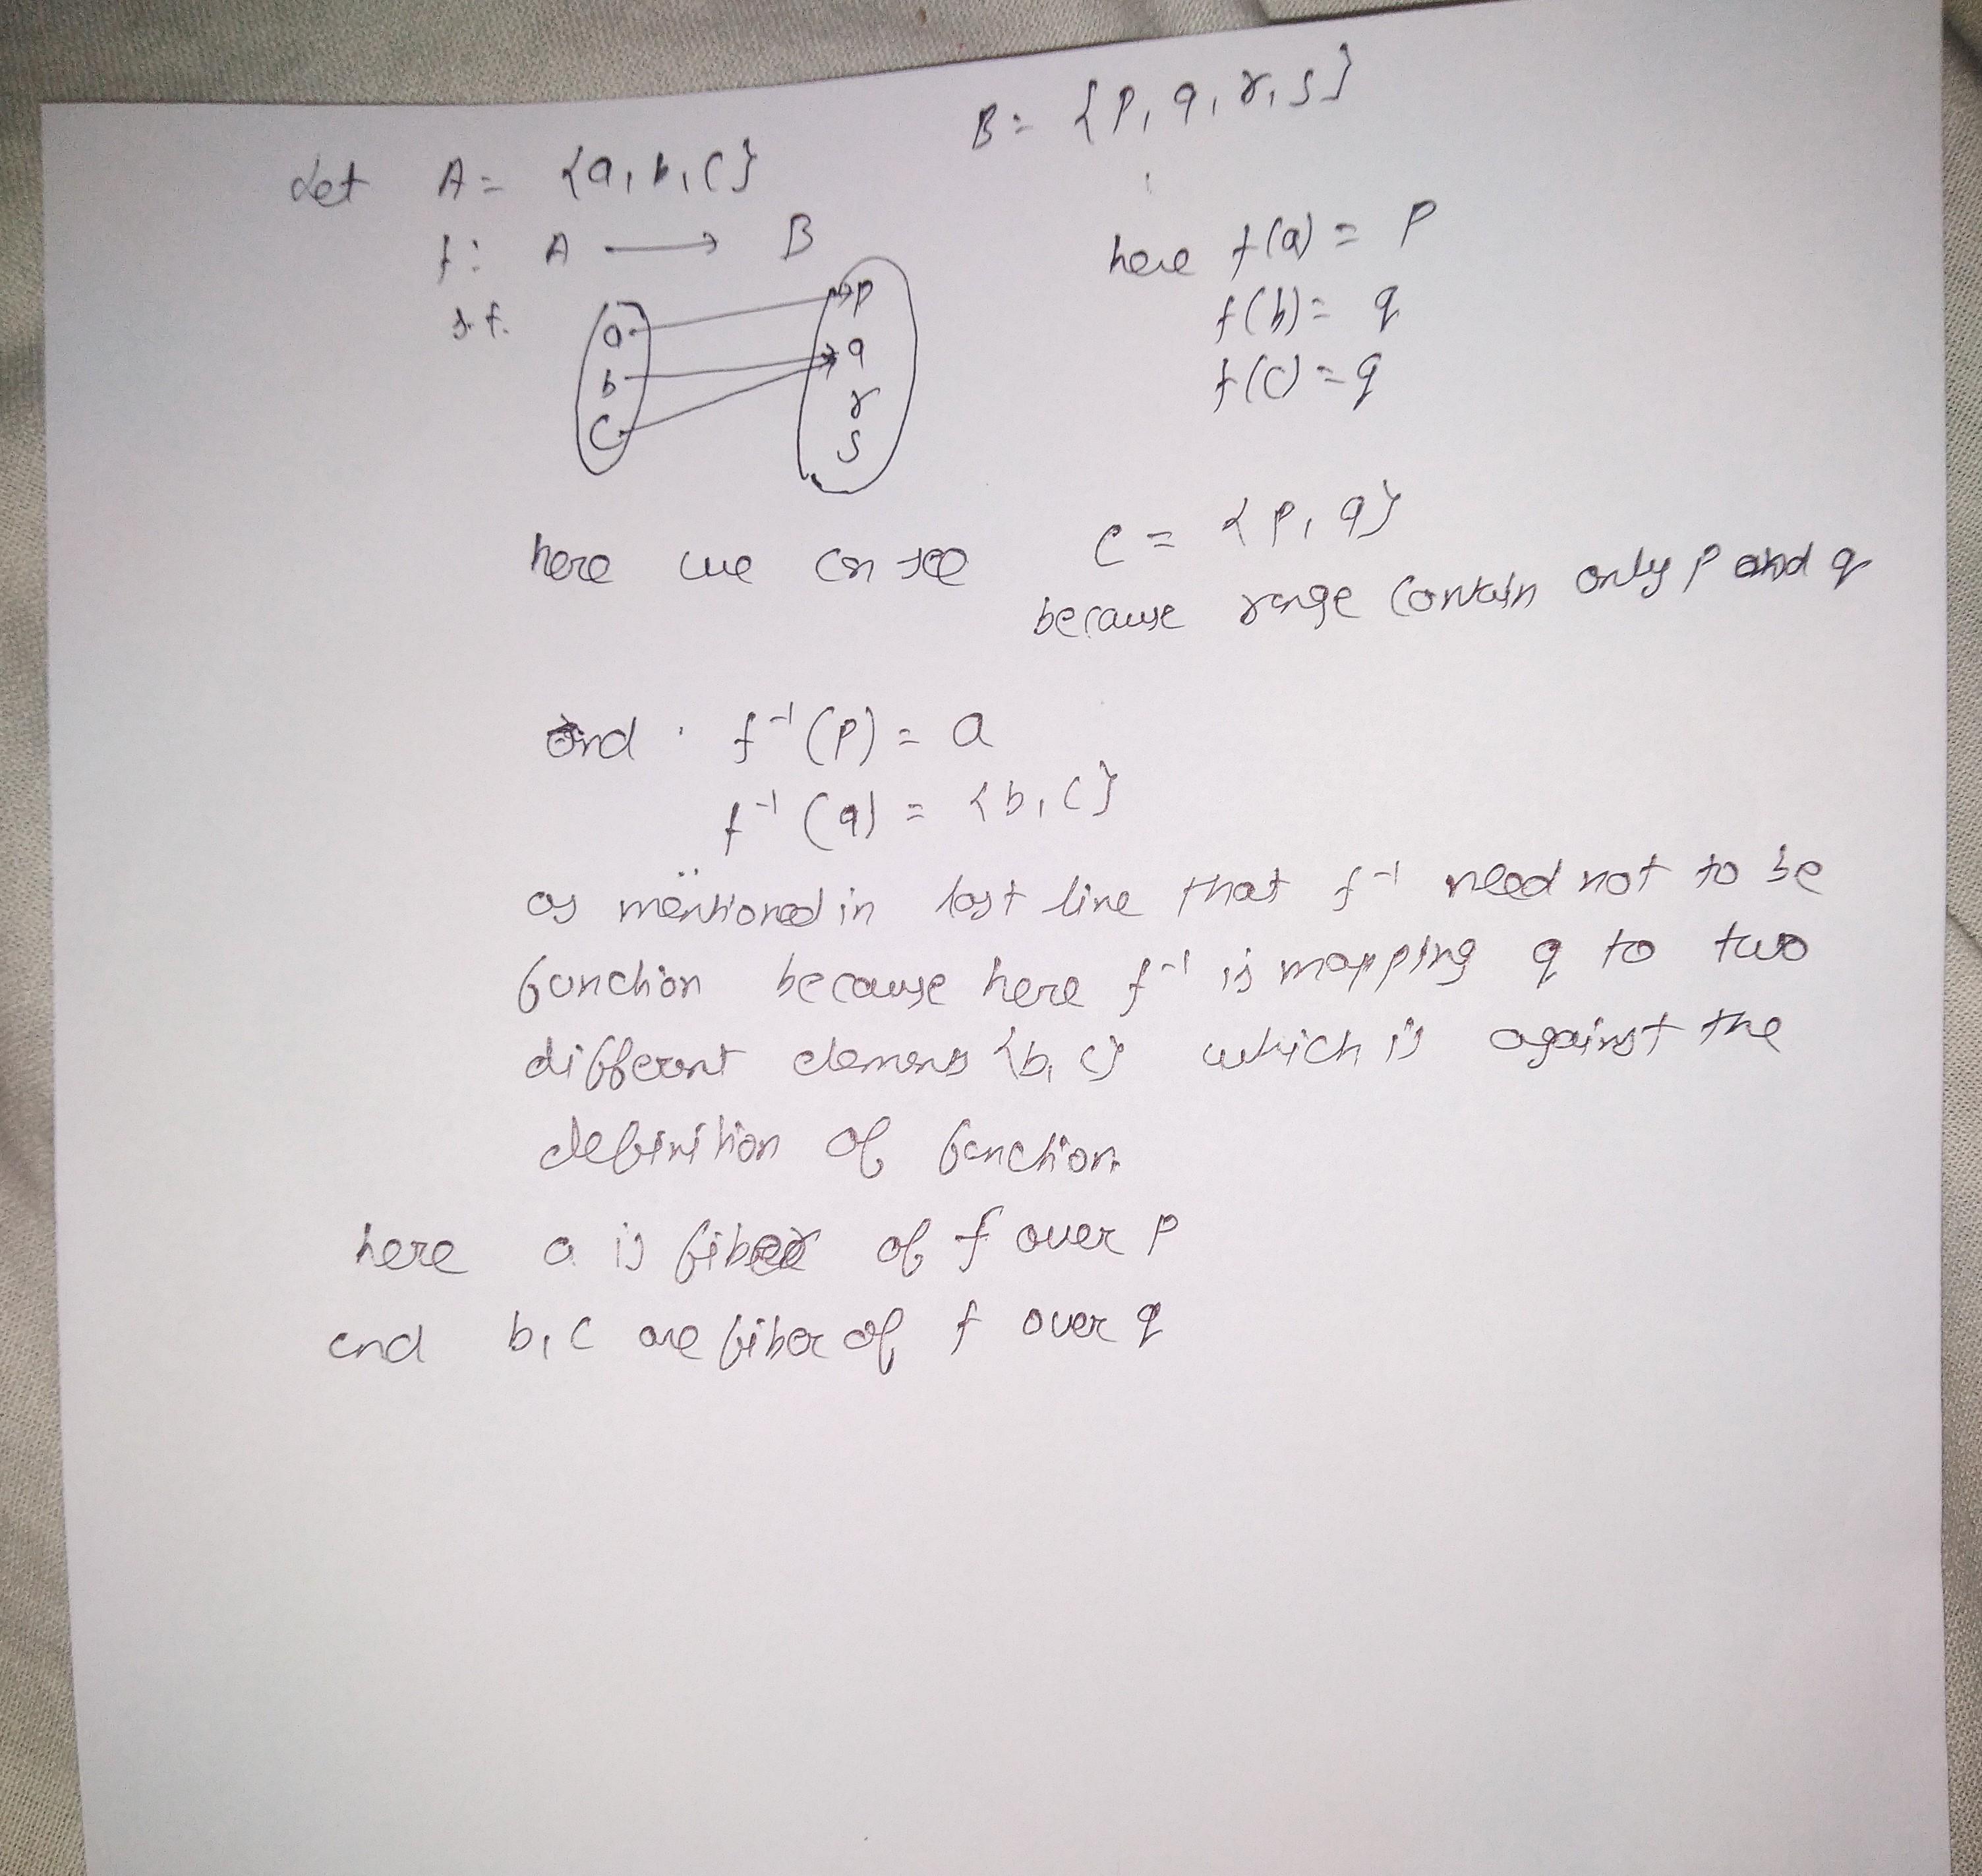 B = {p, q, r, s}
Let A = {a, b, c}
f: A → B
here f(a) = p
s.t.
a p
f(b) = q
b q
f(c) = q
c r
s
here we cn see C = {p, q}
because range contain only p and q
and f⁻¹(p) = a
f⁻¹(q) = {b, c}
as mentioned in last line that f⁻¹ need not to be
function because here f⁻¹ is mapping q to two
different elemens {b, c} which is against the
definition of function
here a is fiber of f over p
and b, c are fiber of f over q